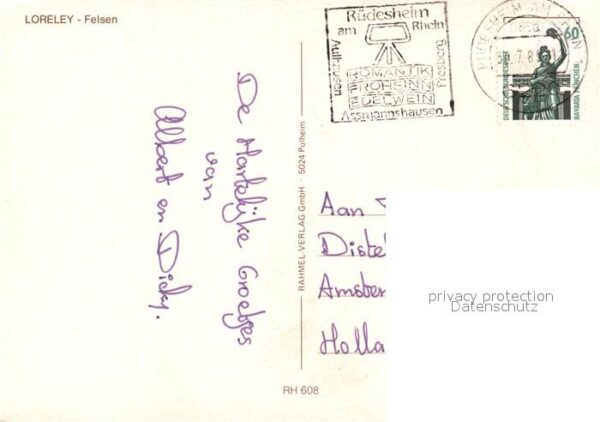 LORELEY - Felsen
Rüdesheim
am Rhein
Aulhausen
Presberg
ROMANTIK
FROHSINN
EDELWEIN
Assmannshausen
RÜDESHEIM AM RHEIN
60
DEUTSCHE BUNDESPOST
BAVARIA MÜNCHEN
De Hartelijke Groetjes
van
Albert en Dicky.
RAHMEL-VERLAG GmbH · 5024 Pulheim
Aan
Diste
Amsber
Holla
privacy protection
Datenschutz
RH 608